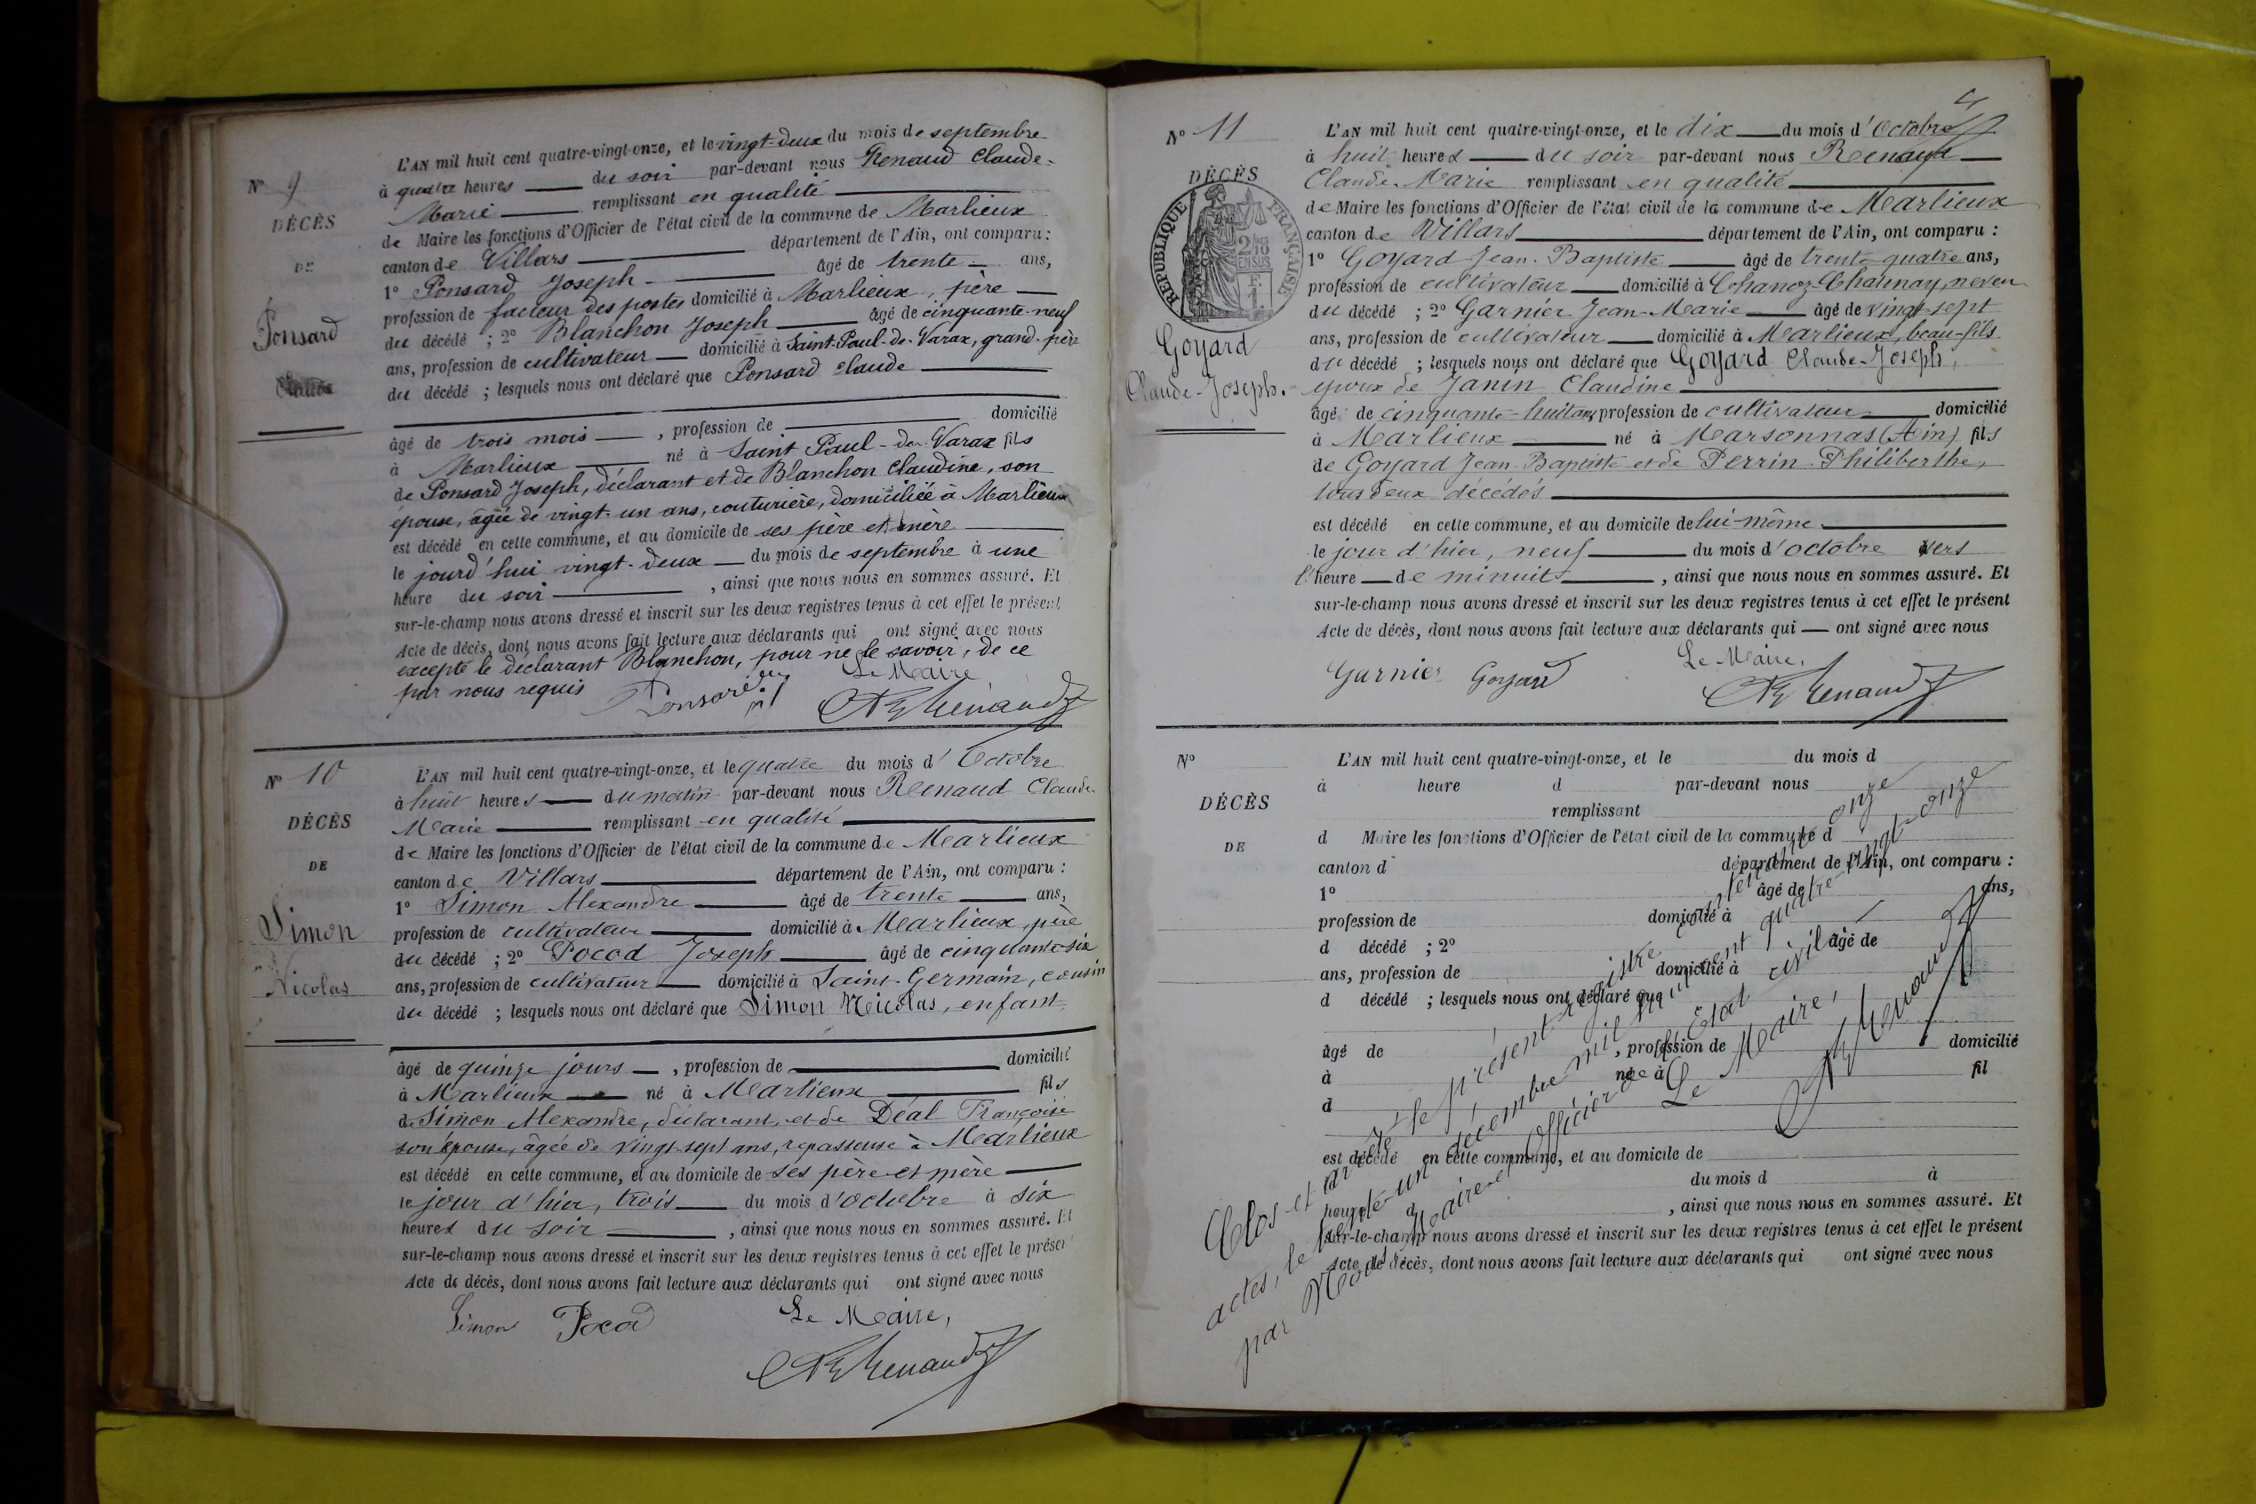 N° 9
DÉCÈS
DE
Ponsard
Claude
L'AN mil huit cent quatre-vingt-onze, et le vingt-deux du mois de septembre
à quatre heures du soir par-devant nous Renaud Claude-
Marie remplissant en qualité
de Maire les fonctions d'Officier de l'état civil de la commune de Marlieux
canton de Villars département de l'Ain, ont comparu :
1° Ponsard Joseph âgé de trente ans,
profession de facteur des postes domicilié à Marlieux, père
du décédé ; 2° Blanchon Joseph âgé de cinquante-neuf
ans, profession de cultivateur domicilié à Saint-Paul-de-Varax, grand-père
du décédé ; lesquels nous ont déclaré que Ponsard Claude
âgé de trois mois , profession de domicilié
à Marlieux né à Saint Paul-de-Varax fils
de Ponsard Joseph, déclarant et de Blanchon Claudine, son
épouse, âgée de vingt-un ans, couturière, domiciliée à Marlieux
est décédé en cette commune, et au domicile de ses père et mère
le jourd'hui vingt-deux du mois de septembre à une
heure du soir , ainsi que nous nous en sommes assuré. Et
sur-le-champ nous avons dressé et inscrit sur les deux registres tenus à cet effet le présent
Acte de décès, dont nous avons fait lecture aux déclarants qui ont signé avec nous
excepté le déclarant Blanchon, pour ne le savoir, de ce
par nous requis Le Maire
Ponsard CM Renaud
N° 10
DÉCÈS
DE
Simon
Nicolas
L'AN mil huit cent quatre-vingt-onze, et le quatre du mois d'Octobre
à huit heures du matin par-devant nous Renaud Claude-
Marie remplissant en qualité
de Maire les fonctions d'Officier de l'état civil de la commune de Marlieux
canton de Villars département de l'Ain, ont comparu :
1° Simon Alexandre âgé de trente ans,
profession de cultivateur domicilié à Marlieux, père
du décédé ; 2° Pocod Joseph âgé de cinquante-six
ans, profession de cultivateur domicilié à Saint-Germain, cousin
du décédé ; lesquels nous ont déclaré que Simon Nicolas, enfant
âgé de quinze jours , profession de domicilié
à Marlieux né à Marlieux fils
de Simon Alexandre, déclarant, et de Déal Françoise
son épouse, âgée de vingt-sept ans, repasseuse à Marlieux
est décédé en cette commune, et au domicile de ses père et mère
le jour d'hier, trois du mois d'octobre à six
heures du soir , ainsi que nous nous en sommes assuré. Et
sur-le-champ nous avons dressé et inscrit sur les deux registres tenus à cet effet le présent
Acte de décès, dont nous avons fait lecture aux déclarants qui ont signé avec nous
Simon Pocod Le Maire,
CM Renaud
N° 11
DÉCÈS
RÉPUBLIQUE FRANÇAISE
Goyard
Claude-Joseph.
L'AN mil huit cent quatre-vingt-onze, et le dix du mois d'Octobre
à huit heures du soir par-devant nous Renaud
Claude-Marie remplissant en qualité
de Maire les fonctions d'Officier de l'état civil de la commune de Marlieux
canton de Villars département de l'Ain, ont comparu :
1° Goyard Jean-Baptiste âgé de trente-quatre ans,
profession de cultivateur domicilié à Chanoz-Châtenay, neveu
du décédé ; 2° Garnier Jean-Marie âgé de vingt-sept
ans, profession de cultivateur domicilié à Marlieux, beau-fils
du décédé ; lesquels nous ont déclaré que Goyard Claude-Joseph,
époux de Janin Claudine
âgé de cinquante-huit ans, profession de cultivateur domicilié
à Marlieux né à Marsonnas (Ain) fils
de Goyard Jean-Baptiste et de Perrin Philiberthe,
tous deux décédés
est décédé en cette commune, et au domicile de lui-même
le jour d'hier, neuf du mois d'octobre vers
l'heure de minuit , ainsi que nous nous en sommes assuré. Et
sur-le-champ nous avons dressé et inscrit sur les deux registres tenus à cet effet le présent
Acte de décès, dont nous avons fait lecture aux déclarants qui ont signé avec nous
Garnier Goyard Le Maire,
CM Renaud
N°
DÉCÈS
DE
L'AN mil huit cent quatre-vingt-onze, et le du mois d
à heure d par-devant nous
remplissant
d Maire les fonctions d'Officier de l'état civil de la commune d
canton d département de l'Ain, ont comparu :
1° âgé de ans,
profession de domicilié à
d décédé ; 2° âgé de
ans, profession de domicilié à
d décédé ; lesquels nous ont déclaré que
âgé de , profession de domicilié
à né à fil
d
est décédé en cette commune, et au domicile de
du mois d à
heure d , ainsi que nous nous en sommes assuré. Et
sur-le-champ nous avons dressé et inscrit sur les deux registres tenus à cet effet le présent
Acte de décès, dont nous avons fait lecture aux déclarants qui ont signé avec nous
Clos et arrêté le présent registre contenant onze
actes, le trente-un décembre mil huit cent quatre-vingt-onze
par Nous, Maire et Officier de l'Etat civil
Le Maire,
CM Renaud